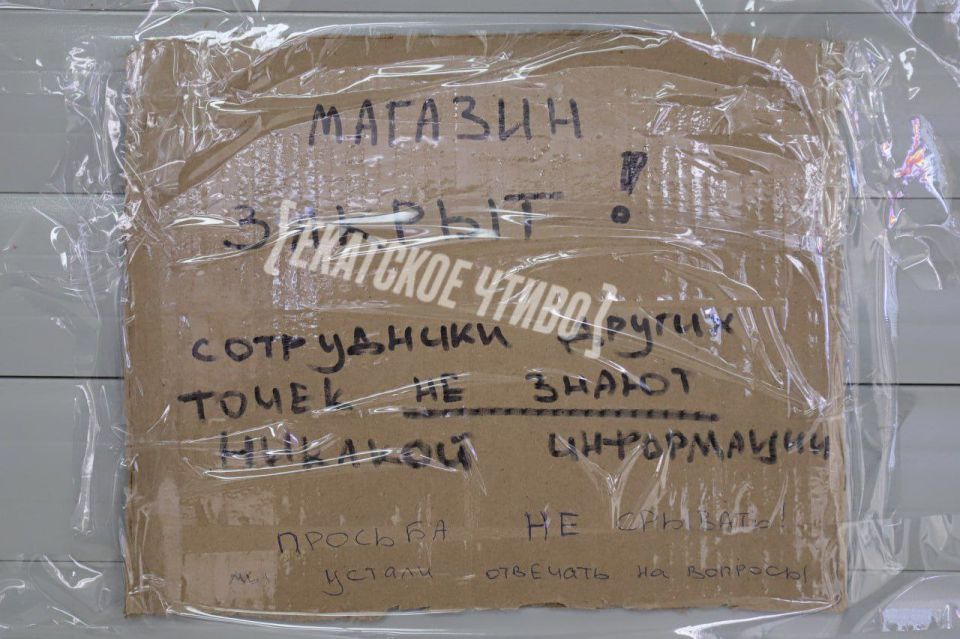 МАГАЗИН
ЗАКРЫТ!
[ЕКАТСКОЕ ЧТИВО]
СОТРУДНИКИ ДРУГИХ
ТОЧЕК НЕ ЗНАЮТ
НИКАКОЙ ИНФОРМАЦИИ
ПРОСЬБА НЕ СРЫВАТЬ!
мы устали отвечать на вопросы